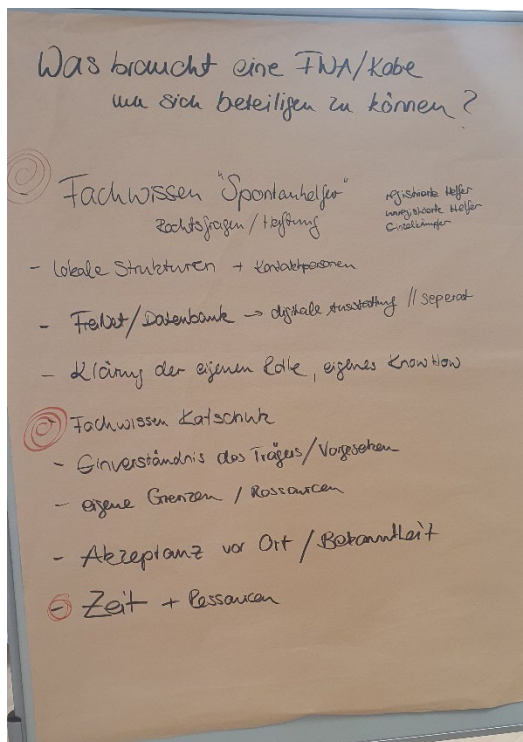 Was braucht eine FWA/Kobe
um sich beteiligen zu können?
Fachwissen "Spontanhelfer"
registrierte Helfer
unregistrierte Helfer
Einzelkämpfer
Rechtsfragen / Haftung
- lokale Strukturen + Kontaktpersonen
- Freinet/Datenbank → digitale Ausstattung // seperat
- Klärung der eigenen Rolle, eigenes KnowHow
Fachwissen Katschutz
- Einverständnis des Trägers/Vorgesetzen
- eigene Grenzen / Ressourcen
- Akzeptanz vor Ort / Bekanntheit
- Zeit + Ressourcen